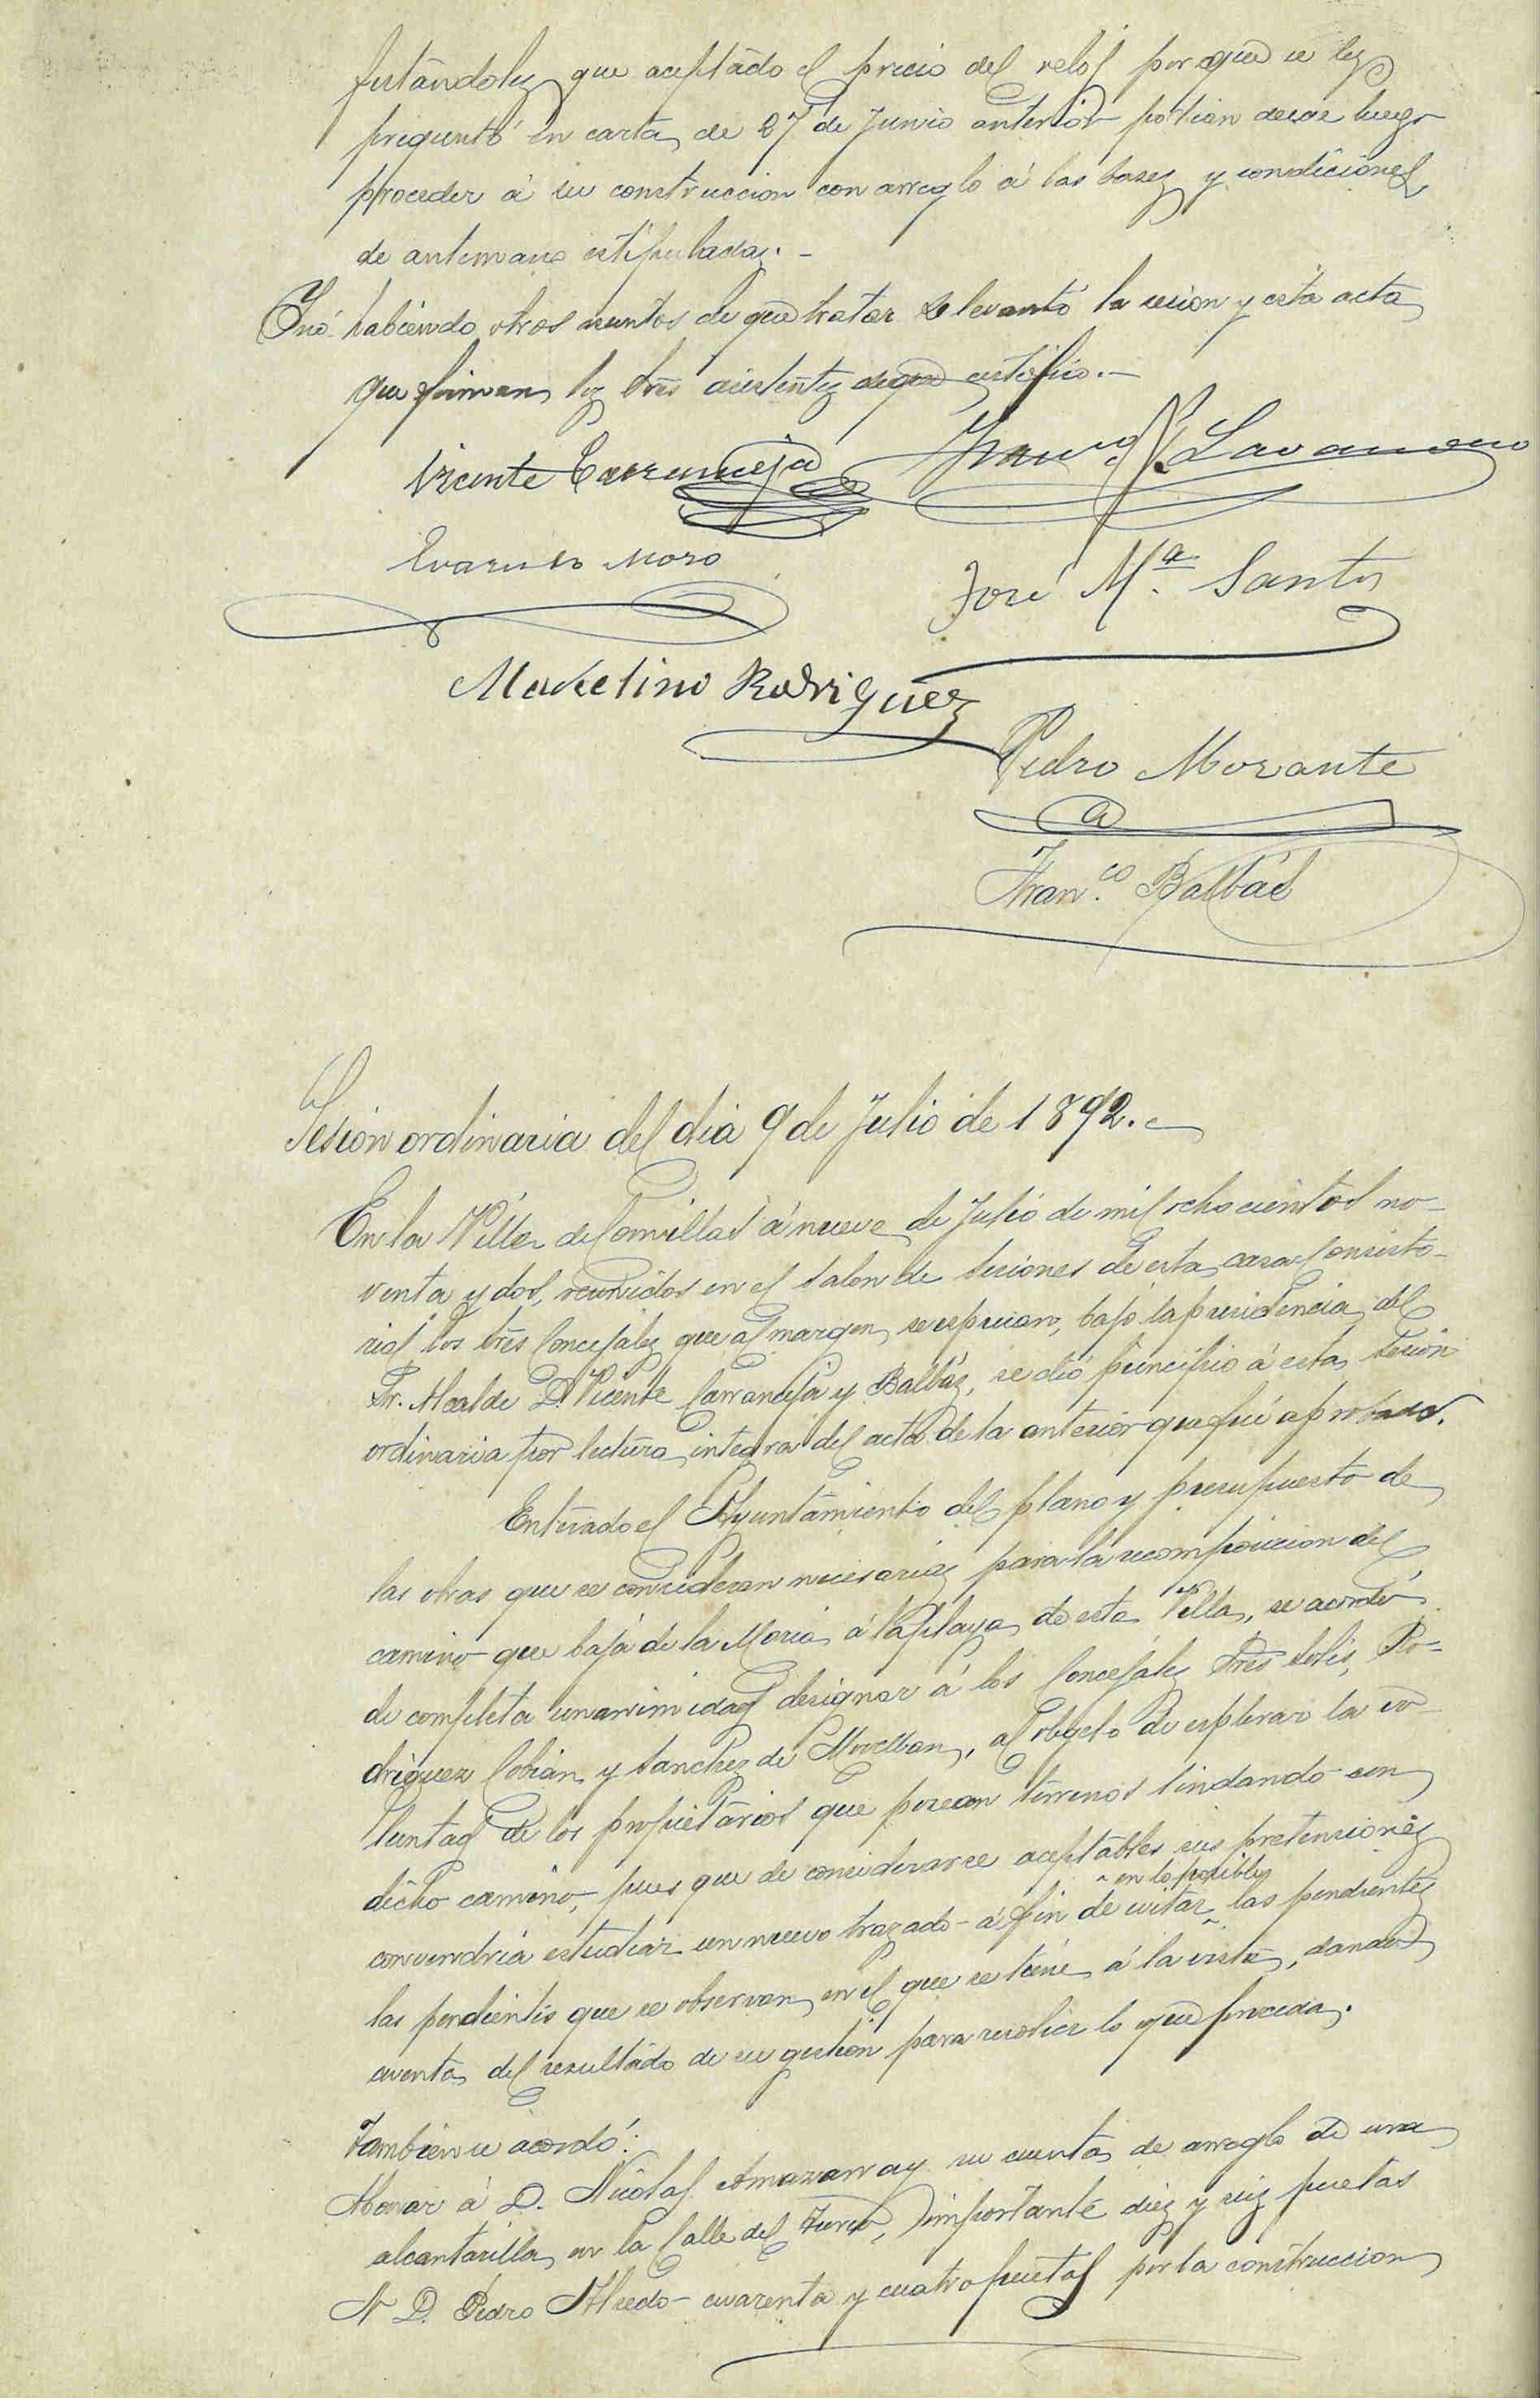 festándoles que aceptado el precio del reloj porque se les
preguntó en carta de 27 de Junio anterior podian desde luego
proceder á su construccion con arreglo á las bases y condiciones
de antemano estipuladas.-
Y nó habiendo otros asuntos de que tratar se levantó la sesion y esta acta
que firman los Sres asistentes de que certifico.-
Vicente Carranceja
Evaristo Moro
José Mª. Santos
Marcelino Rodriguez
Pedro Morante
Fran.co Balbás
Sesion ordinaria del dia 9 de Julio de 1892.
En la Villa de Comillas á nueve de Julio de mil ochocientos no-
venta y dos, reunidos en el salon de sesiones de esta casa Consisto-
rial los Sres Concejales que al margen se expresan, bajo la presidencia del
Sr. Alcalde D. Vicente Carranceja y Balbás, se dió principio á esta sesion
ordinaria por lectura integra del acta de la anterior que fué aprobada.
Enterado el Ayuntamiento del plano y presupuesto de
las obras que se consideran necesarias para la recomposicion del
camino que baja de la Moria á la playa de esta Villa, se acordó
de completa unanimidad designar á los Concejales Sres Solis, Ro-
driguez Cobian y Sanchez de Movellan, al objeto de esplorar la vo-
luntad de los propietarios que posean terrenos lindando con
dicho camino, pues que de considerarse aceptables sus pretensiones
convendria estudiar un nuevo trazado á fin de evitar en lo posible las pendientes
las pendientes que se observan en el que se tiene á la vista, dando
cuenta del resultado de su gestion para resolver lo que proceda.
Tambien se acordó:
Abonar á D. Nicolas Amazarray su cuenta de arreglo de una
alcantarilla en la Calle del importante diez y seis pesetas
A D. Pedro cuarenta y cuatro pesetas por la construccion